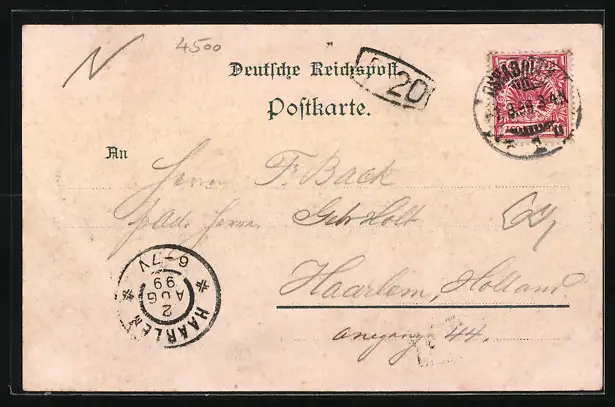 N 4500
Deutsche Reichspost
20
Postkarte.
An
Herrn Fr. Back
p. Adr. Herrn Gebr Holt
Haarlem, Holland
Anegang 44.
HAARLEM
2
AUG
99
6-7V